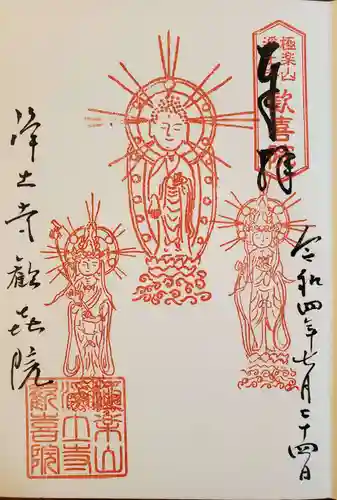 極楽山
浄土寺
歓喜院
奉拝
令和四年七月二十四日
浄土寺歓喜院
極楽山
浄土寺
歓喜院